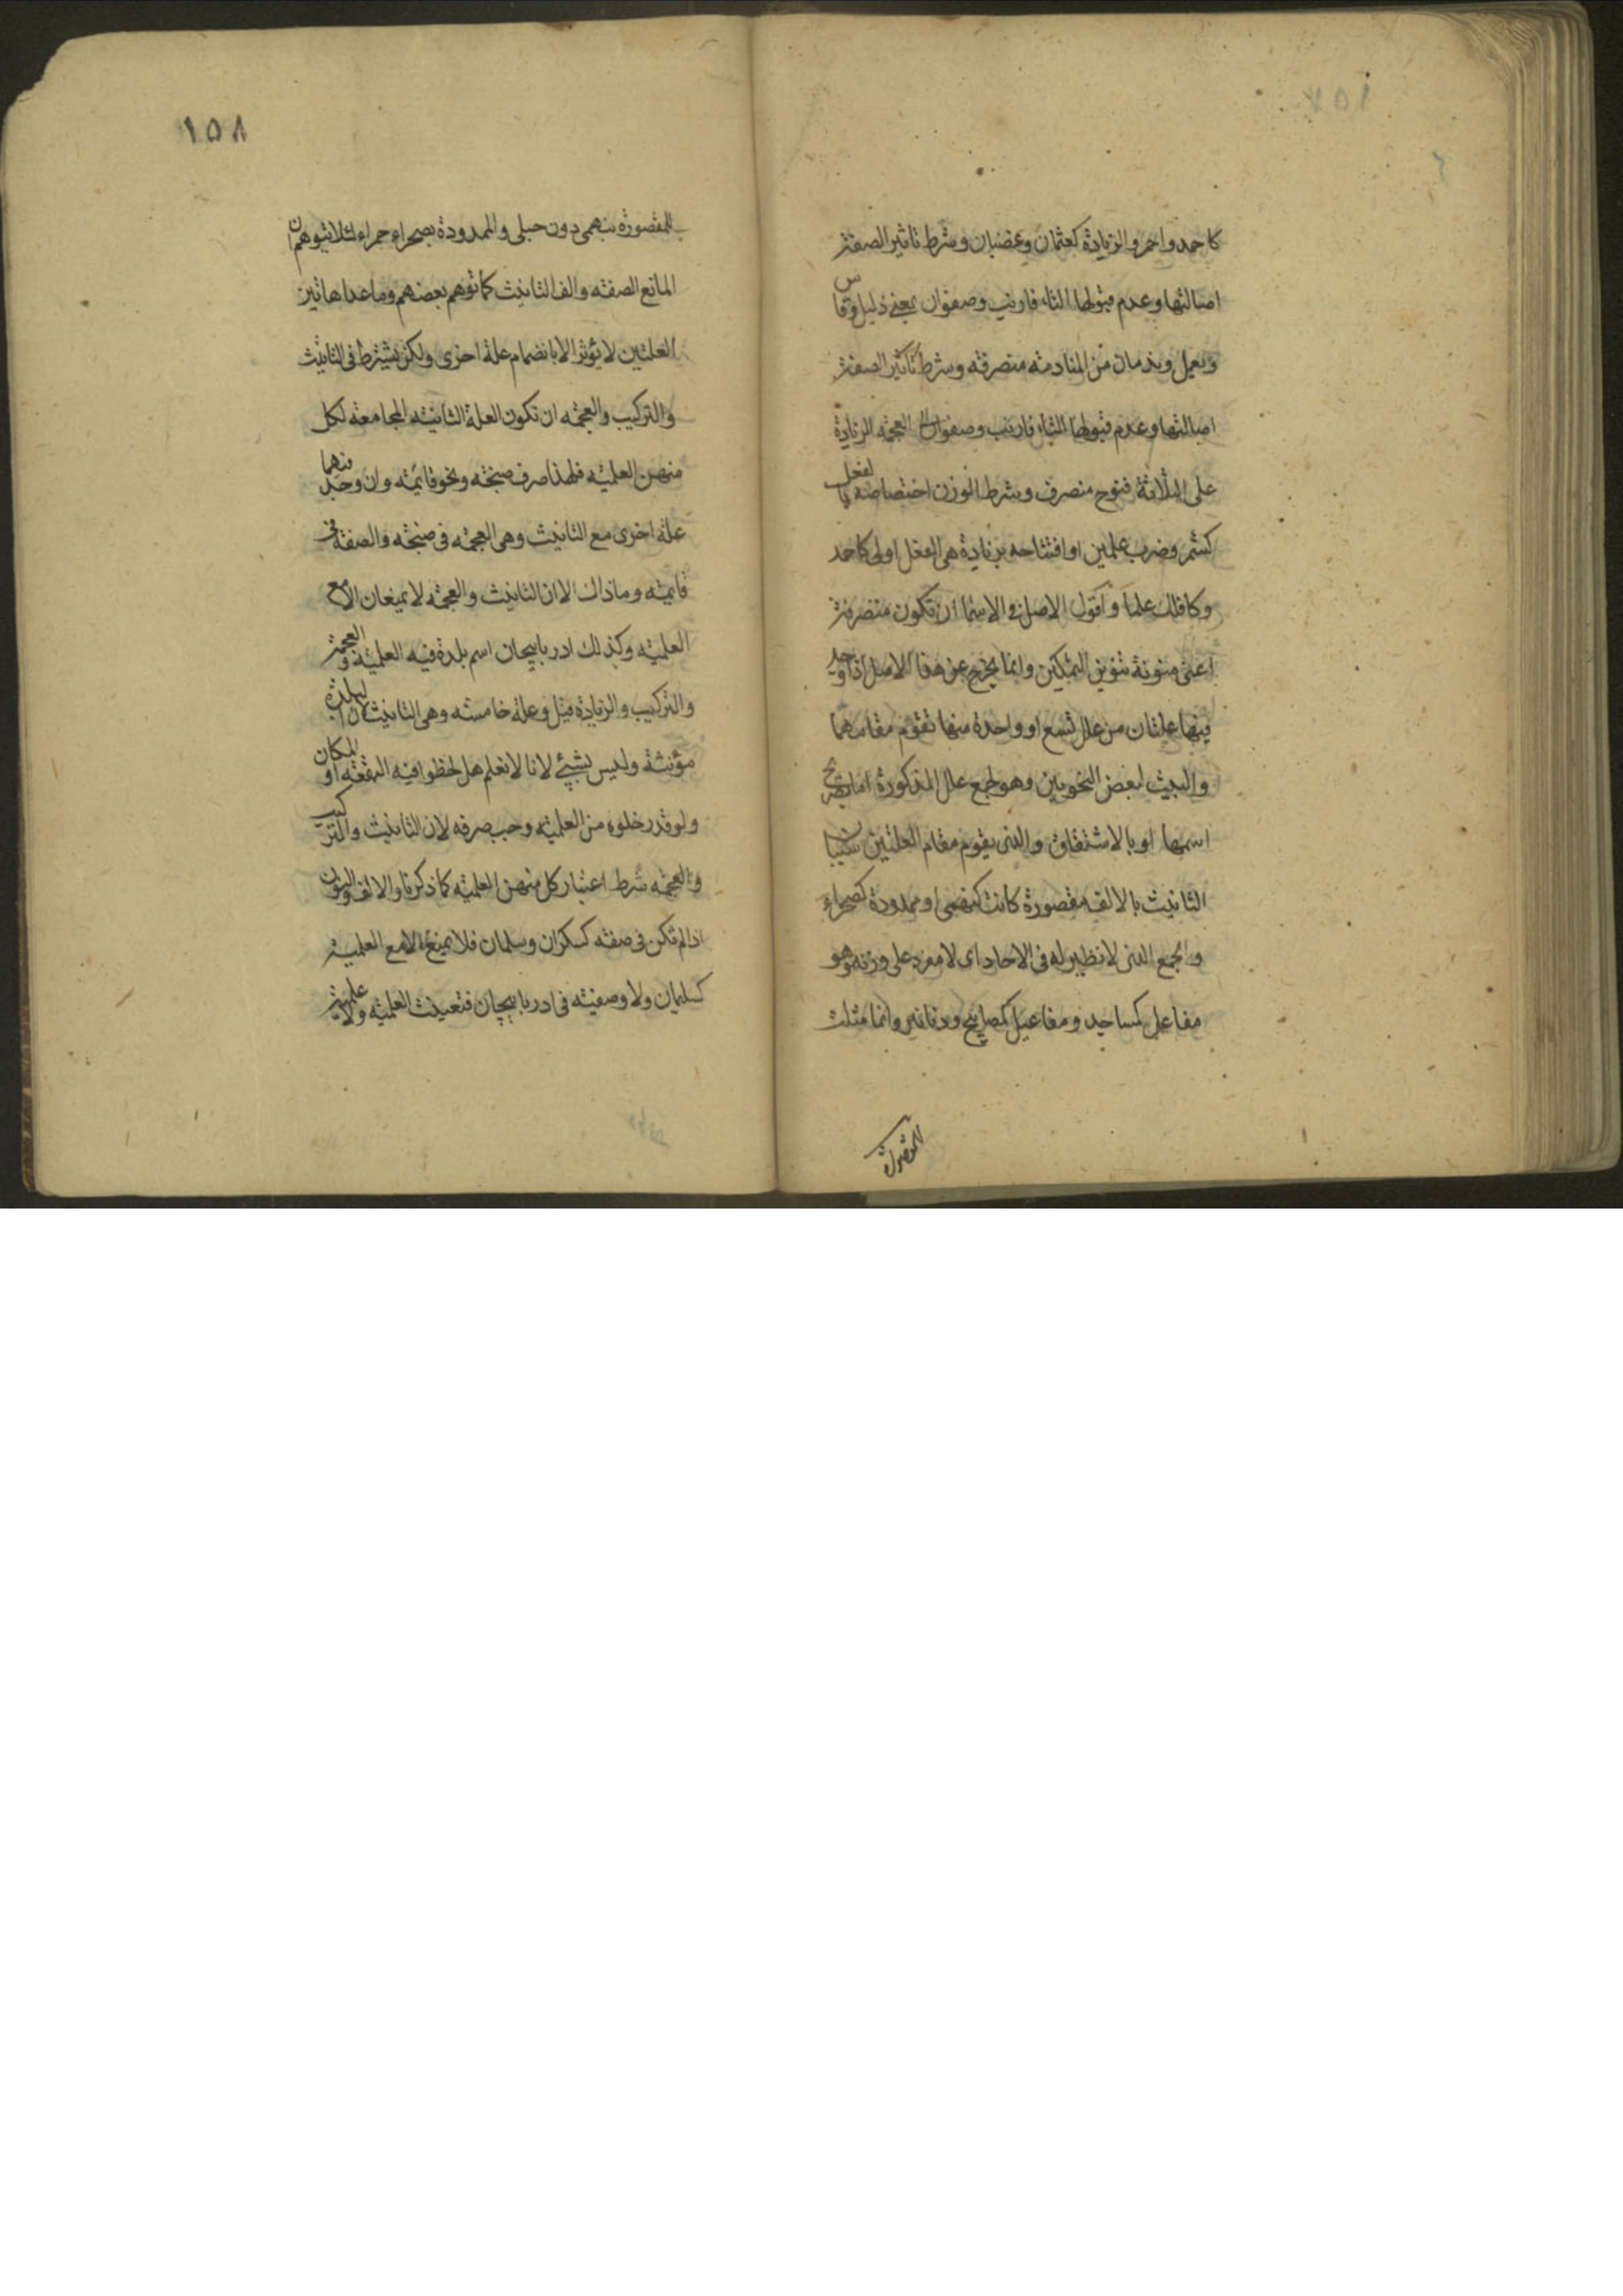 كاحمد واحمر والزيادة كعثمان وغضبان وشرط تاثير الصفة
اصالتها وعدم قبولها التاء فارنب وصفوان بمعنى ذليل وقاس
ويعمل وندمان من المنادمة منصرفة وشرط تاثير الصفة
اصالتها وعدم قبولها التاء فارنب وصفوان العجمة الزيادة
على الثلاثة فنوح منصرف وشرط الوزن اختصاصه بالفعل
كشمر وضرب علمين او افتتاحه بزيادة هى بالفعل اولى كاحمد
وكافكل علما واقول الاصل فى الاسما ان تكون منصرفة
اعنى منونة تنوين التمكين وانما يخرج عن هذا الاصل اذا وجد
فيها علتان من علل تسع او واحدة منها تقوم مقامهما
والبيت لبعض النحويين وهو لجمع علل المذكورة اما بصريح
اسمها او بالاشتقاق والذى يقوم مقام العلتين شيئان
التانيث بالالف مقصورة كانت كبهمى او ممدودة كصحراء
والجمع الذى لا نظير له فى الاحاد اى لا مفرد على وزنه وهو
مفاعل كمساجد ومفاعيل كمصابيح ودنانير وانما مثلت
للمقصورة
١٥٨
للمقصورة ببهمى دون حبلى والممدودة بصحراء حمراء لئلا يتوهم ان
المانع الصفة والف التانيث كما توهم بعضهم وما عدا هاتين
العلتين لا يؤثر الا بانضمام علة اخرى ولكن يشترط فى التانيث
والتركيب والعجمة ان تكون العلة الثانية المجامعة لكل
منهن العلمية فلهذا صرف صنجة ونحو قائمة وان وجد فيهما
علة اخرى مع التانيث وهى العجمة فى صنجة والصفة فى
قائمة وما ذاك الا ان التانيث والعجمة لا يمنعان الا مع
العلمية وكذلك ادربايجان اسم بلدة فيه العلمية والعجمة
والتركيب والزيادة قيل وعلة خامسة وهى التانيث لان البلدة
مؤنثة وليس بشيئ لانا لا نعلم هل لحظوا فيه البقعة او المكان
ولو قدر خلوه من العلمية وجب صرفه لان التانيث والتركيب
والعجمة شرط اعتبار كل منهن العلمية كما ذكرنا والالف والنون
اذا لم تكن فى صفة كسكران وسلمان فلا يمنع الا مع العلمية
كسليمان ولا وصفية فى ادربايجان فتعينت العلمية ولا علمية